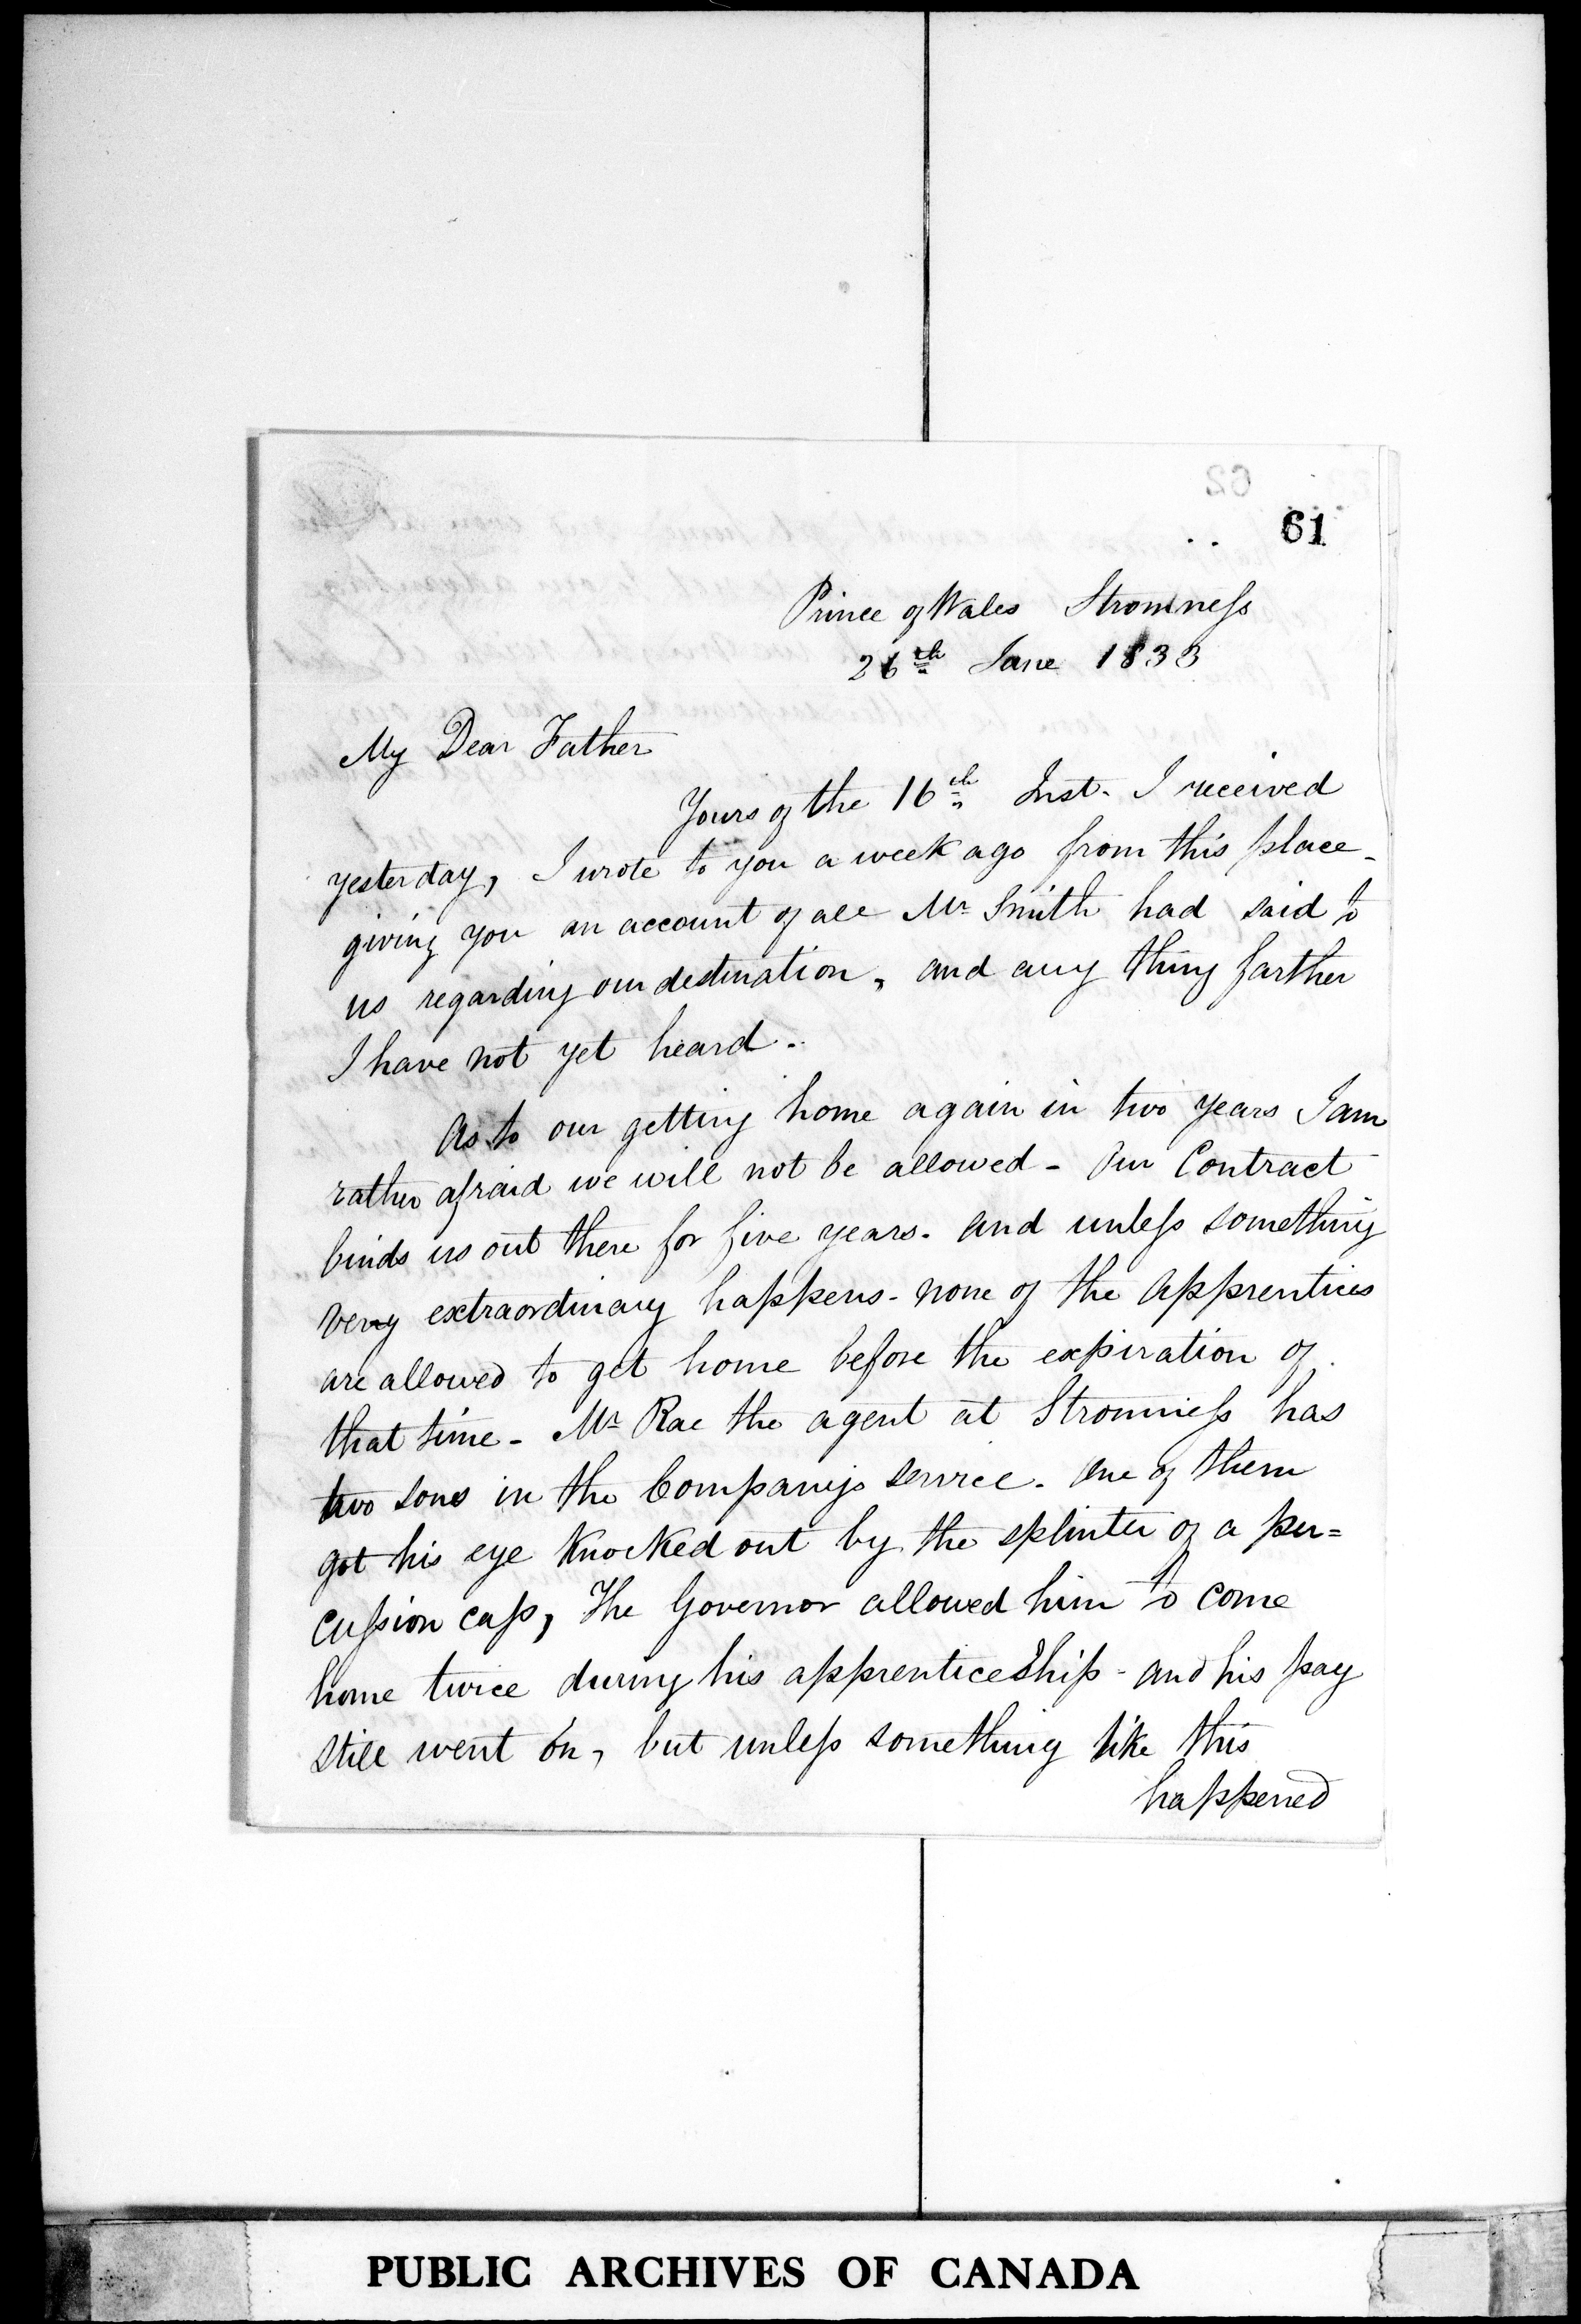 61
Prince of Wales Stromness
26th June 1833
My Dear Father
Yours of the 16th Inst. I received
yesterday, I wrote to you a week ago from this place -
giving you an account of all Mr Smith had said to
us regarding our destination, and any thing farther
I have not yet heard.
As to our getting home again in two years I am
rather afraid we will not be allowed - Our Contract
binds us out there for five years. and unless something
very extraordinary happens - none of the apprentices
are allowed to get home before the expiration of
that time - Mr Rae the agent at Stromness has
two sons in the Companys service. One of them
got his eye knocked out by the splinter of a per=
cussion cap, The Governor allowed him to come
home twice during his apprenticeship - and his pay
still went on, but unless something like this
happened
PUBLIC ARCHIVES OF CANADA